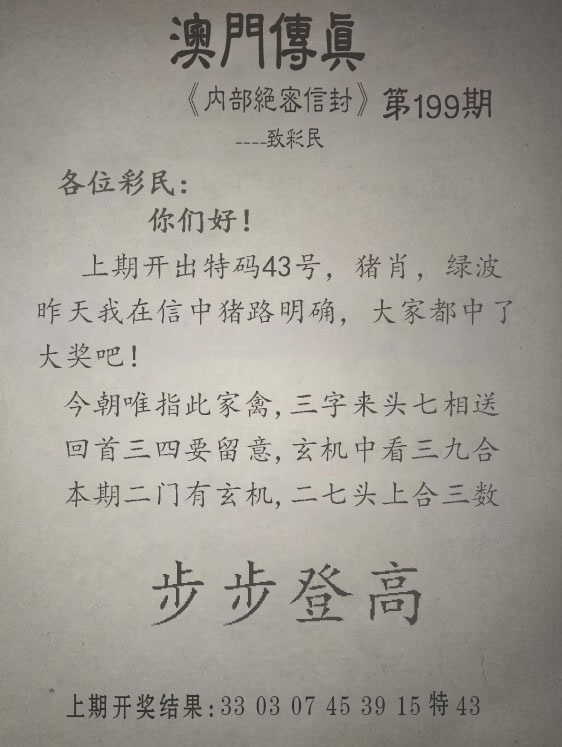 澳門傳真
《内部絕密信封》第199期
----致彩民
各位彩民：
你们好！
上期开出特码43号，猪肖，绿波
昨天我在信中猪路明确，大家都中了
大奖吧！
今朝唯指此家禽,三字来头七相送
回首三四要留意,玄机中看三九合
本期二门有玄机,二七头上合三数
步步登高
上期开奖结果:33 03 07 45 39 15特43